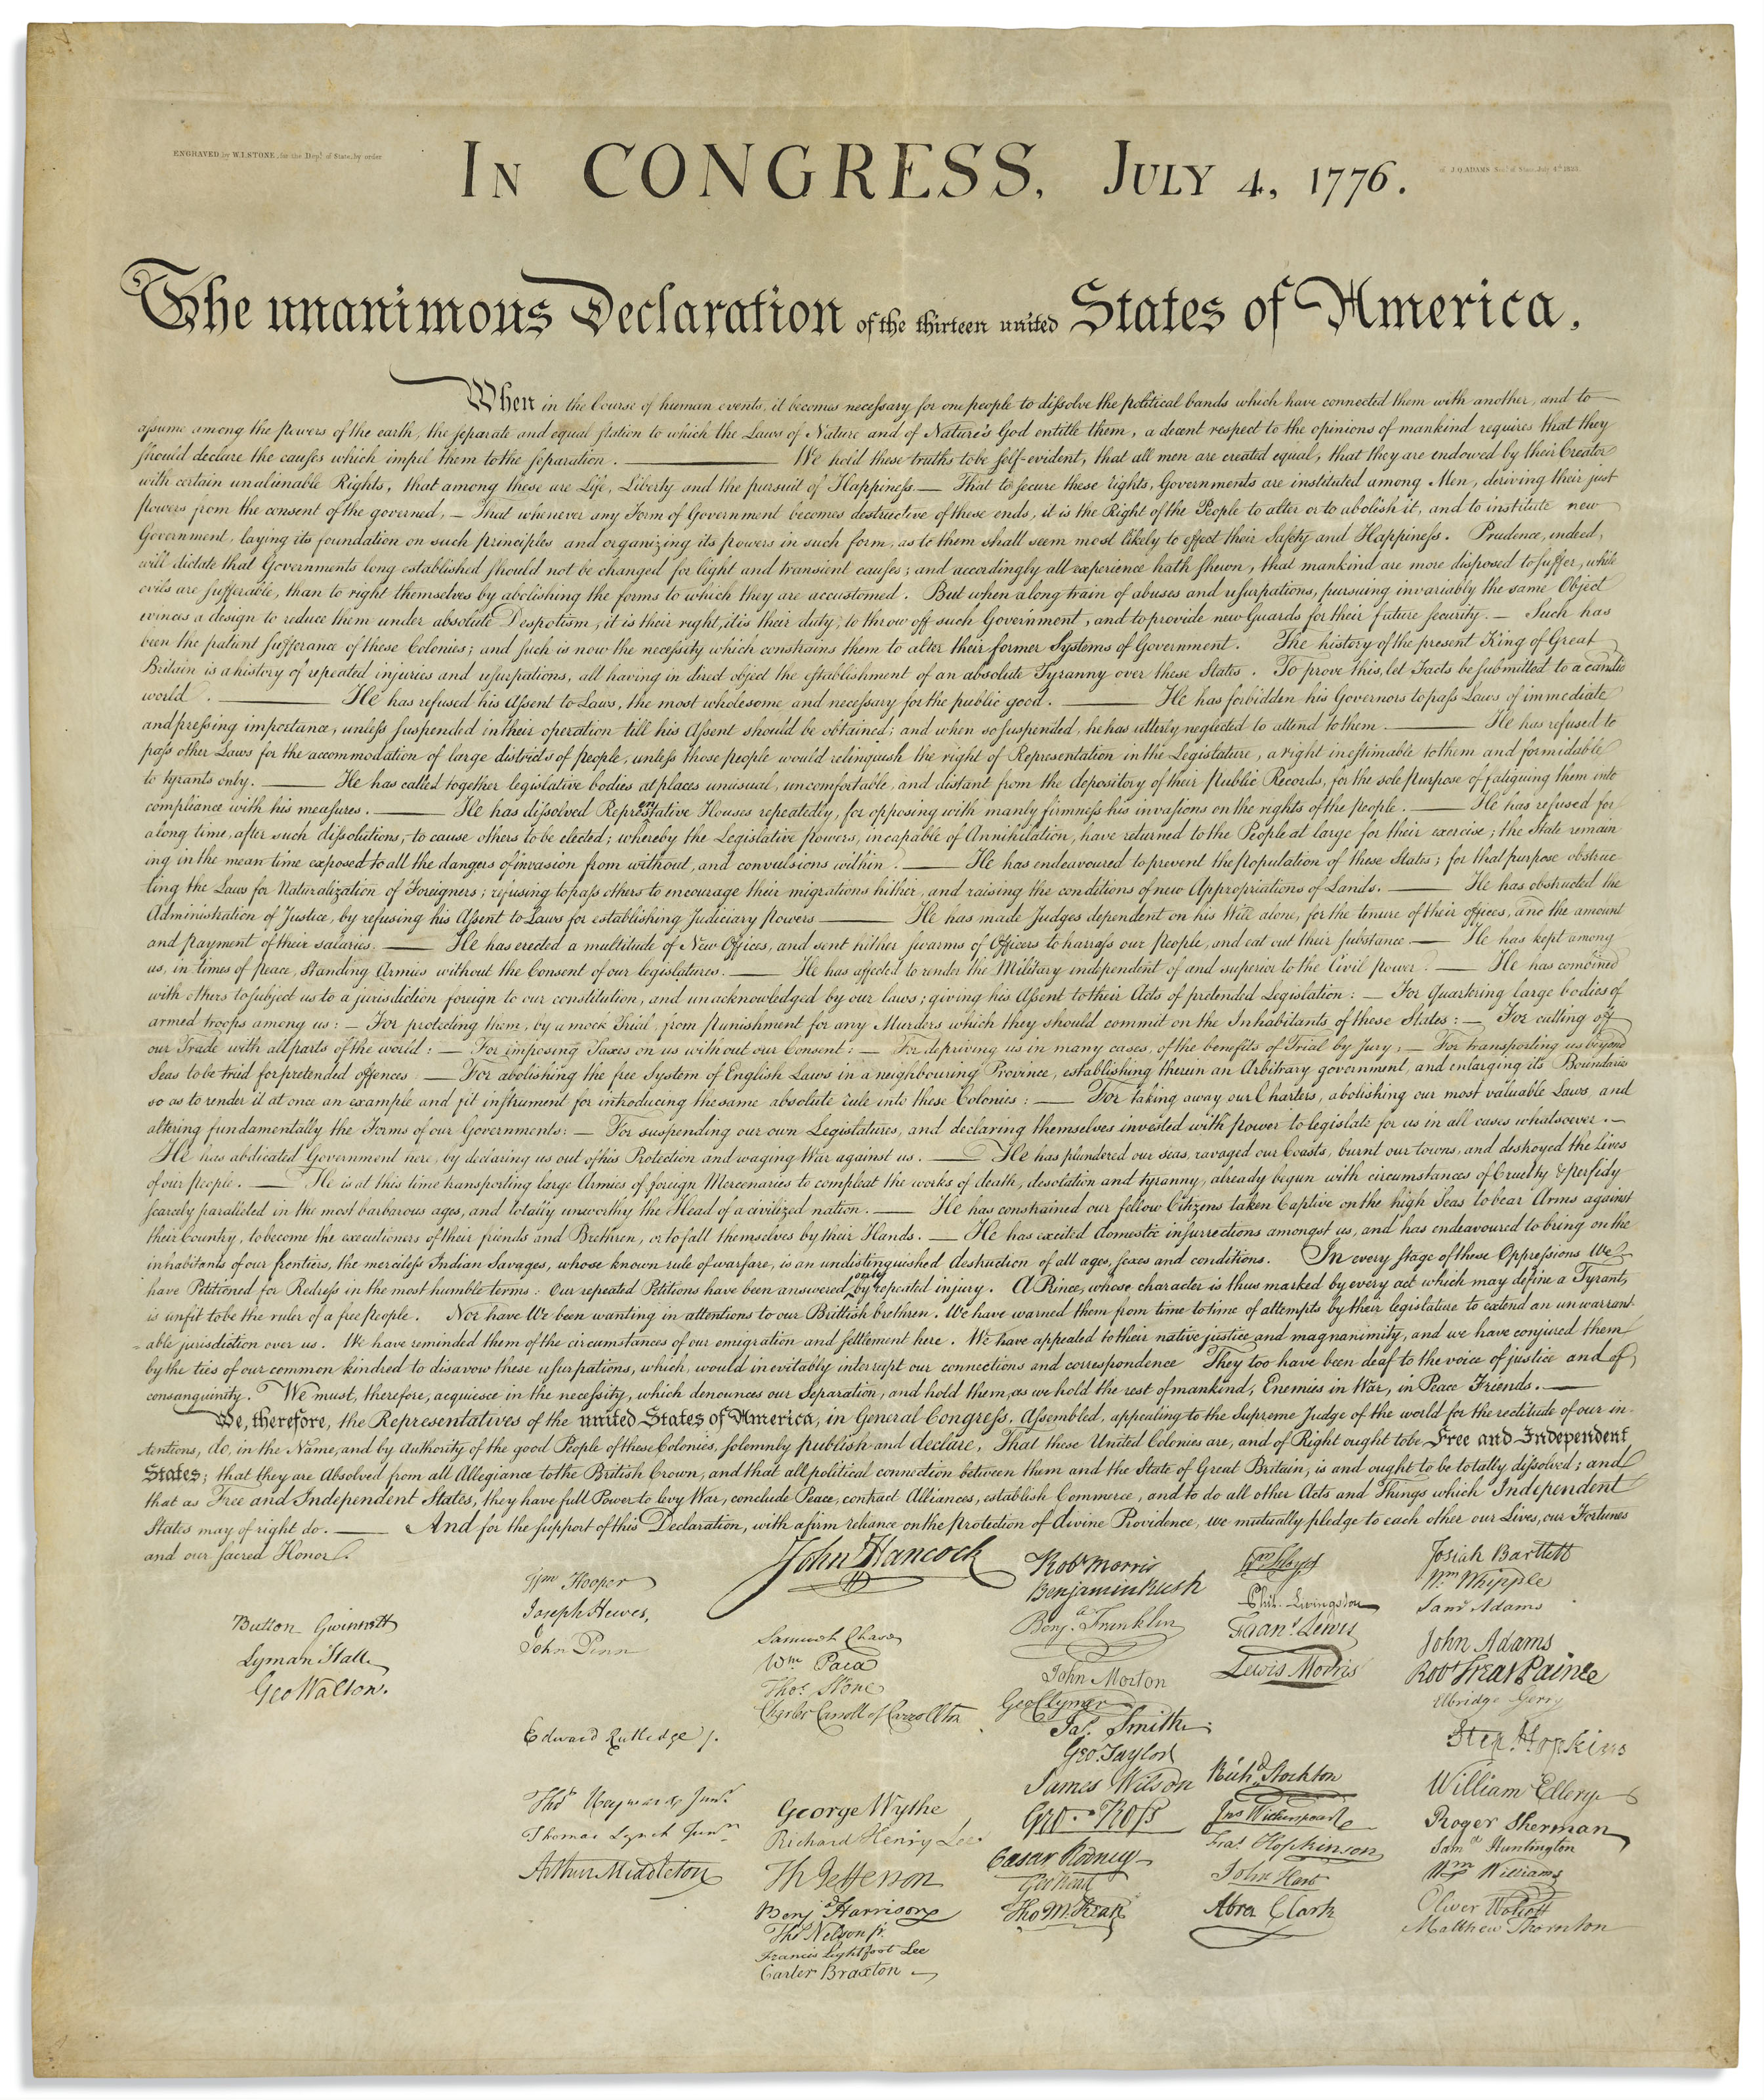 ENGRAVED by W.I.STONE, for the Dept. of State, by order
of J.Q.ADAMS Secy. of State, July 4th 1823.
IN CONGRESS, JULY 4, 1776.
The unanimous Declaration of the thirteen united States of America,
When in the Course of human events, it becomes necessary for one people to dissolve the political bands which have connected them with another, and to
assume among the powers of the earth, the separate and equal station to which the Laws of Nature and of Nature's God entitle them, a decent respect to the opinions of mankind requires that they
should declare the causes which impel them to the separation. — We hold these truths to be self-evident, that all men are created equal, that they are endowed by their Creator
with certain unalienable Rights, that among these are Life, Liberty and the pursuit of Happiness. — That to secure these rights, Governments are instituted among Men, deriving their just
powers from the consent of the governed, — That whenever any Form of Government becomes destructive of these ends, it is the Right of the People to alter or to abolish it, and to institute new
Government, laying its foundation on such principles and organizing its powers in such form, as to them shall seem most likely to effect their Safety and Happiness. Prudence, indeed,
will dictate that Governments long established should not be changed for light and transient causes; and accordingly all experience hath shewn, that mankind are more disposed to suffer, while
evils are sufferable, than to right themselves by abolishing the forms to which they are accustomed. But when a long train of abuses and usurpations, pursuing invariably the same Object
evinces a design to reduce them under absolute Despotism, it is their right, it is their duty, to throw off such Government, and to provide new Guards for their future security. — Such has
been the patient sufferance of these Colonies; and such is now the necessity which constrains them to alter their former Systems of Government. The history of the present King of Great
Britain is a history of repeated injuries and usurpations, all having in direct object the establishment of an absolute Tyranny over these States. To prove this, let Facts be submitted to a candid
world. — He has refused his Assent to Laws, the most wholesome and necessary for the public good. — He has forbidden his Governors to pass Laws of immediate
and pressing importance, unless suspended in their operation till his Assent should be obtained; and when so suspended, he has utterly neglected to attend to them. — He has refused to
pass other Laws for the accommodation of large districts of people, unless those people would relinquish the right of Representation in the Legislature, a right inestimable to them and formidable
to tyrants only. — He has called together legislative bodies at places unusual, uncomfortable, and distant from the depository of their Public Records, for the sole purpose of fatiguing them into
compliance with his measures. — He has dissolved Representative Houses repeatedly, for opposing with manly firmness his invasions on the rights of the people. — He has refused for
a long time, after such dissolutions, to cause others to be elected; whereby the Legislative powers, incapable of Annihilation, have returned to the People at large for their exercise; the State remain
ing in the mean time exposed to all the dangers of invasion from without, and convulsions within. — He has endeavoured to prevent the population of these States; for that purpose obstruc
ting the Laws for Naturalization of Foreigners; refusing to pass others to encourage their migrations hither, and raising the conditions of new Appropriations of Lands. — He has obstructed the
Administration of Justice, by refusing his Assent to Laws for establishing Judiciary powers — He has made Judges dependent on his Will alone, for the tenure of their offices, and the amount
and payment of their salaries. — He has erected a multitude of New Offices, and sent hither swarms of Officers to harrass our people, and eat out their substance. — He has kept among
us, in times of peace, Standing Armies without the Consent of our legislatures. — He has affected to render the Military independent of and superior to the Civil power. — He has combined
with others to subject us to a jurisdiction foreign to our constitution, and unacknowledged by our laws; giving his Assent to their Acts of pretended Legislation: — For Quartering large bodies of
armed troops among us: — For protecting them, by a mock Trial, from punishment for any Murders which they should commit on the Inhabitants of these States: — For cutting off
our Trade with all parts of the world: — For imposing Taxes on us without our Consent: — For depriving us in many cases, of the benefits of Trial by Jury: — For transporting us beyond
Seas to be tried for pretended offences — For abolishing the free System of English Laws in a neighbouring Province, establishing therein an Arbitrary government, and enlarging its Boundaries
so as to render it at once an example and fit instrument for introducing the same absolute rule into these Colonies: — For taking away our Charters, abolishing our most valuable Laws, and
altering fundamentally the Forms of our Governments: — For suspending our own Legislatures, and declaring themselves invested with power to legislate for us in all cases whatsoever. —
He has abdicated Government here, by declaring us out of his Protection and waging War against us. — He has plundered our seas, ravaged our Coasts, burnt our towns, and destroyed the lives
of our people. — He is at this time transporting large Armies of foreign Mercenaries to compleat the works of death, desolation and tyranny, already begun with circumstances of Cruelty & perfidy
scarcely paralleled in the most barbarous ages, and totally unworthy the Head of a civilized nation. — He has constrained our fellow Citizens taken Captive on the high Seas to bear Arms against
their Country, to become the executioners of their friends and Brethren, or to fall themselves by their Hands. — He has excited domestic insurrections amongst us, and has endeavoured to bring on the
inhabitants of our frontiers, the merciless Indian Savages, whose known rule of warfare, is an undistinguished destruction of all ages, sexes and conditions. In every stage of these Oppressions We
have Petitioned for Redress in the most humble terms: Our repeated Petitions have been answered only by repeated injury. A Prince, whose character is thus marked by every act which may define a Tyrant,
is unfit to be the ruler of a free people. Nor have We been wanting in attentions to our Brittish brethren. We have warned them from time to time of attempts by their legislature to extend an unwarrant-
-able jurisdiction over us. We have reminded them of the circumstances of our emigration and settlement here. We have appealed to their native justice and magnanimity, and we have conjured them
by the ties of our common kindred to disavow these usurpations, which, would inevitably interrupt our connections and correspondence They too have been deaf to the voice of justice and of
consanguinity. We must, therefore, acquiesce in the necessity, which denounces our Separation, and hold them, as we hold the rest of mankind, Enemies in War, in Peace Friends. —
We, therefore, the Representatives of the united States of America, in General Congress, Assembled, appealing to the Supreme Judge of the world for the rectitude of our in-
tentions, do, in the Name, and by Authority of the good People of these Colonies, solemnly publish and declare, That these United Colonies are, and of Right ought to be Free and Independent
States; that they are Absolved from all Allegiance to the British Crown, and that all political connection between them and the State of Great Britain, is and ought to be totally dissolved; and
that as Free and Independent States, they have full Power to levy War, conclude Peace, contract Alliances, establish Commerce, and to do all other Acts and Things which Independent
States may of right do. — And for the support of this Declaration, with a firm reliance on the protection of divine Providence, we mutually pledge to each other our Lives, our Fortunes
and our sacred Honor.
Button Gwinnett
Lyman Hall
Geo Walton.
Wm Hooper
Joseph Hewes,
John Penn
Edward Rutledge /.
Thos Heyward Junr.
Thomas Lynch Junr.
Arthur Middleton
John Hancock
Samuel Chase
Wm. Paca
Thos. Stone
Charles Carroll of Carrollton
George Wythe
Richard Henry Lee
Th Jefferson
Benj Harrison
Thos Nelson jr.
Francis Lightfoot Lee
Carter Braxton
Robt Morris
Benjamin Rush
Benja. Franklin
John Morton
Geo Clymer
Jas. Smith
Geo. Taylor
James Wilson
Geo. Ross
Caesar Rodney
Geo Read
Tho M:Kean
Wm Floyd
Phil. Livingston
Frans. Lewis
Lewis Morris
Richd. Stockton
Jno Witherspoon
Fras. Hopkinson
John Hart
Abra Clark
Josiah Bartlett
Wm: Whipple
Saml Adams
John Adams
Robt Treat Paine
Elbridge Gerry
Step. Hopkins
William Ellery
Roger Sherman
Saml Huntington
Wm Williams
Oliver Wolcott
Matthew Thornton